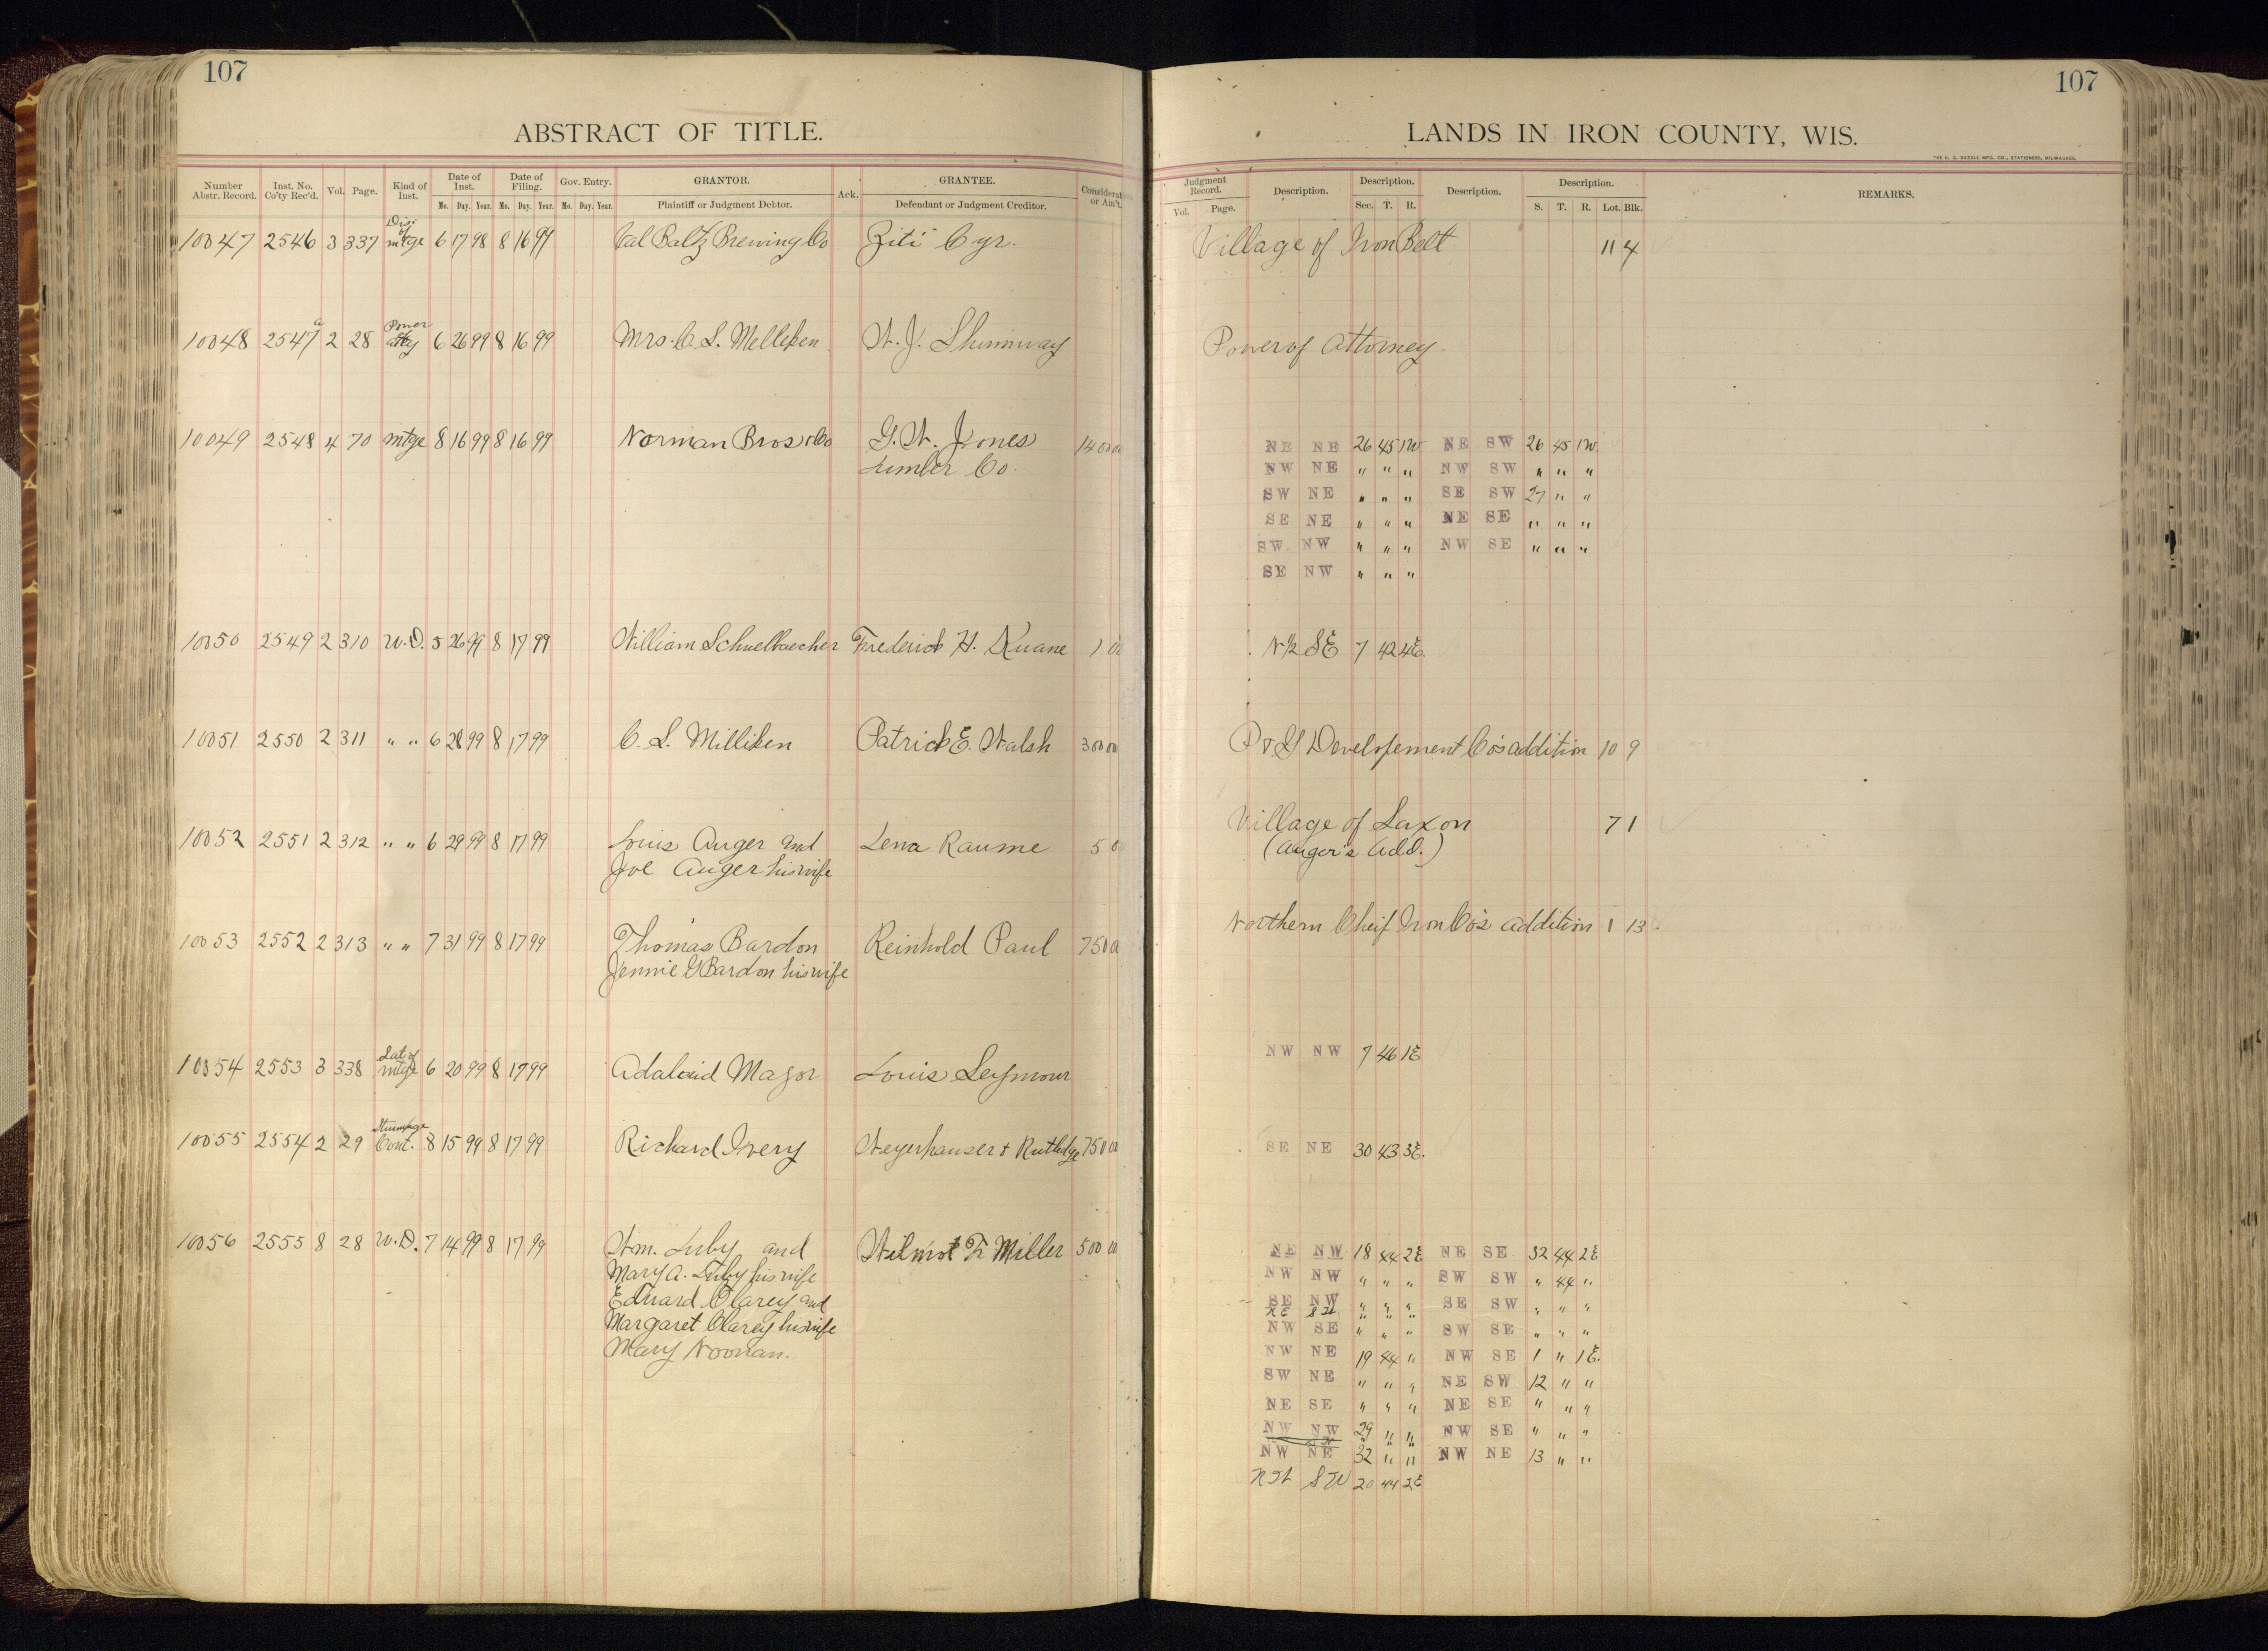 107
ABSTRACT OF TITLE.
Number Abstr. Record. Inst. No. Co'ty Rec'd. Vol. Page. Kind of Inst. Date of Inst. Date of Filing. Gov. Entry. GRANTOR. Ack. GRANTEE. Considerat or Am't.
Mo. Day. Year. Mo. Day. Year. Mo. Day. Year. Plaintiff or Judgment Debtor. Defendant or Judgment Creditor.
10047 2546 3 337 of mtge 6 17 98 8 16 99 Val Baltz Brewing Co Ziti Cyr.
10048 2547a 2 28 Power atty 6 26 99 8 16 99 Mrs. C. L. Melliken W. J. Shumway
10049 2548 4 70 mtge 8 16 99 8 16 99 Norman Bros & Co G. W. Jones 1400 00
Lumber Co.
10050 2549 2 310 W.D. 5 26 99 8 17 99 William Schuelbaecher Frederick H. Kuane 1 00
10051 2550 2 311 " " 6 28 99 8 17 99 C. L. Milliken Patrick E. Walsh 300 00
10052 2551 2 312 " " 6 29 99 8 17 99 Louis Auger and Lena Raume 5 0
Joe Auger his wife
10053 2552 2 313 " " 7 31 99 8 17 99 Thomas Bardon Reinhold Paul 75 00
Jennie G Bardon his wife
10054 2553 3 338 Sat of mtge 6 20 99 8 17 99 Adalaid Major Louis Seymour
10055 2554 2 29 Stumpage Cont. 8 15 99 8 17 99 Richard Ivery Weyerhauser & Rutledge 750 00
10056 2555 8 28 W.D. 7 14 99 8 17 99 Wm. Luby and Wilmot F. Miller 500 00
Mary A. Luby his wife
Edward Clarey and
Margaret Clarey his wife
Mary Noonan.
107
LANDS IN IRON COUNTY, WIS.
THE H. G. RAZALL MFG. CO., STATIONERS, MILWAUKEE.
Judgment Record. Description. Description. Description. Description. REMARKS.
Vol. Page. Sec. T. R. S. T. R. Lot. Blk.
Village of Iron Belt 11 4
Power of Attorney.
NE NE 26 45 1W NE SW 26 45 1W.
NW NE " " " NW SW " " "
SW NE " " " SE SW 27 " "
SE NE " " " NE SE " " "
SW NW " " " NW SE " " "
SE NW " " "
N½ SE 7 42 4E.
P & G Developement Co's addition 10 9
Village of Saxon 7 1
(Auger's Add.)
Northern Cheif Iron Co's addition 1 13
NW NW 7 46 1E
SE NE 30 43 3E.
NE NW 18 44 2E NE SE 32 44 2E
NW NW " " " SW SW " 44 "
SE NW " " " SE SW " " "
NE SW " " "
NW SE " " " SW SE " " "
NW NE 19 44 " NW SE 1 " 1E.
SW NE " " " NE SW 12 " "
NE SE " " " NE SE " " "
NW NW 29 " " NW SE " " "
NW NE 32 " " NW NE 13 " "
NW SW 20 44 2E